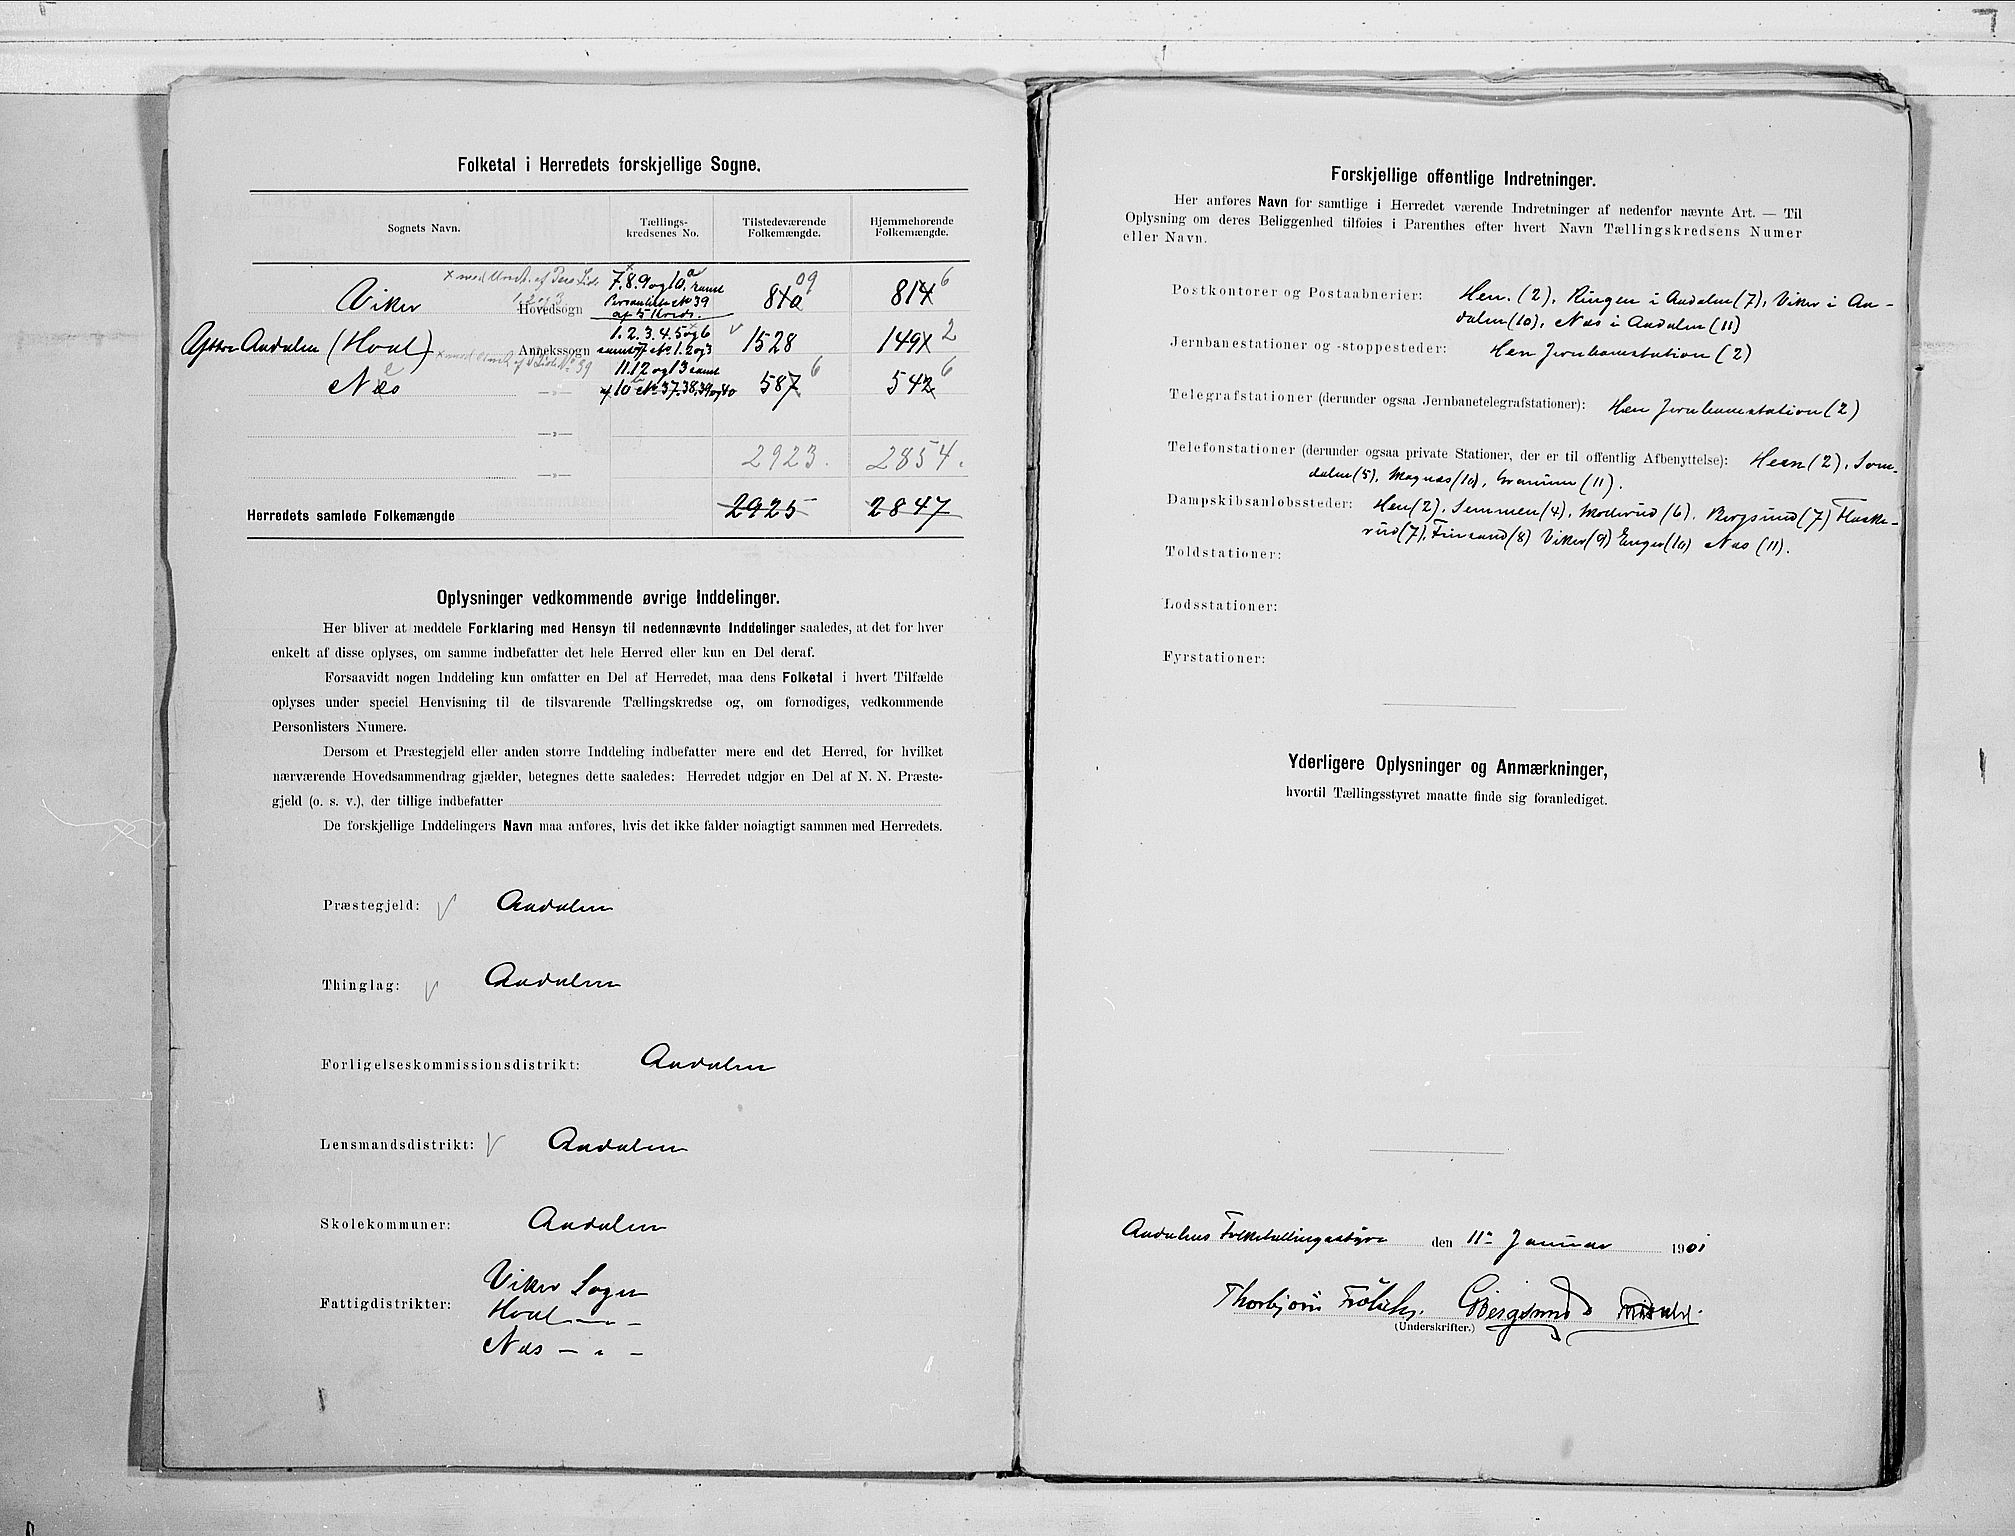 Folketal i Herredets forskjellige Sogne.
Sognets Navn.
Tællings-
kredsenes No.
Tilstedeværende
Folkemængde.
Hjemmehørende
Folkemængde.
Viker Hovedsogn 7. 8. 9 og 10 samt 810 09 814 6
Personliste № 39
af 5 Kreds.
Ytre Aadalen (Hval) Annekssogn 1. 2. 3. 4. 5 og 6 1528 1491 2
samt 7 № 1. 2 og 3
Næs —„— 11. 12 og 13 samt 587 6 542 6
af 10 № 37. 38. 39 og 40
—„—
2923. 2854.
—„—
Herredets samlede Folkemængde 2925 2847
Oplysninger vedkommende øvrige Inddelinger.
Her bliver at meddele Forklaring med Hensyn til nedennævnte Inddelinger saaledes, at det for hver
enkelt af disse oplyses, om samme indbefatter det hele Herred eller kun en Del deraf.
Forsaavidt nogen Inddeling kun omfatter en Del af Herredet, maa dens Folketal i hvert Tilfælde
oplyses under speciel Henvisning til de tilsvarende Tællingskredse og, om fornødiges, vedkommende
Personlisters Numere.
Dersom et Præstegjeld eller anden større Inddeling indbefatter mere end det Herred, for hvilket
nærværende Hovedsammendrag gjælder, betegnes dette saaledes: Herredet udgjør en Del af N. N. Præste-
gjeld (o. s. v.), der tillige indbefatter
De forskjellige Inddelingers Navn maa anføres, hvis det ikke falder nøiagtigt sammen med Herredets.
Præstegjeld: Aadalen
Thinglag: Aadalen
Forligelseskommissionsdistrikt: Aadalen
Lensmandsdistrikt: Aadalen
Skolekommuner: Aadalen
Fattigdistrikter: Viker Sogn
Hval — „ —
Næs — „ —
Forskjellige offentlige Indretninger.
Her anføres Navn for samtlige i Herredet værende Indretninger af nedenfor nævnte Art. — Til
Oplysning om deres Beliggenhed tilføies i Parenthes efter hvert Navn Tællingskredsens Numer
eller Navn.
Postkontorer og Postaabnerier: Hen. (2), Ringen i Aadalen (7), Viker i Aa-
dalen (10), Næs i Aadalen (11)
Jernbanestationer og -stoppesteder: Hen Jernbanestation (2)
Telegrafstationer (derunder ogsaa Jernbanetelegrafstationer): Hen Jernbanestation (2)
Telefonstationer (derunder ogsaa private Stationer, der er til offentlig Afbenyttelse): Heen (2), Som-
dalen (5), Magnæs (10), Granum (11).
Dampskibsanløbssteder: Hen (2), Semmen (4), Moderud (6), Bergsund (7) Haske-
rud (7), Finsand (8) Viker (9) Enger (10) Næs (11).
Toldstationer:
Lodsstationer:
Fyrstationer:
Yderligere Oplysninger og Anmærkninger,
hvortil Tællingsstyret maatte finde sig foranlediget.
Aadalens Folketællingsstyre den 11te Januar 1901
Thorbjørn G Bergsund
(Underskrifter.)